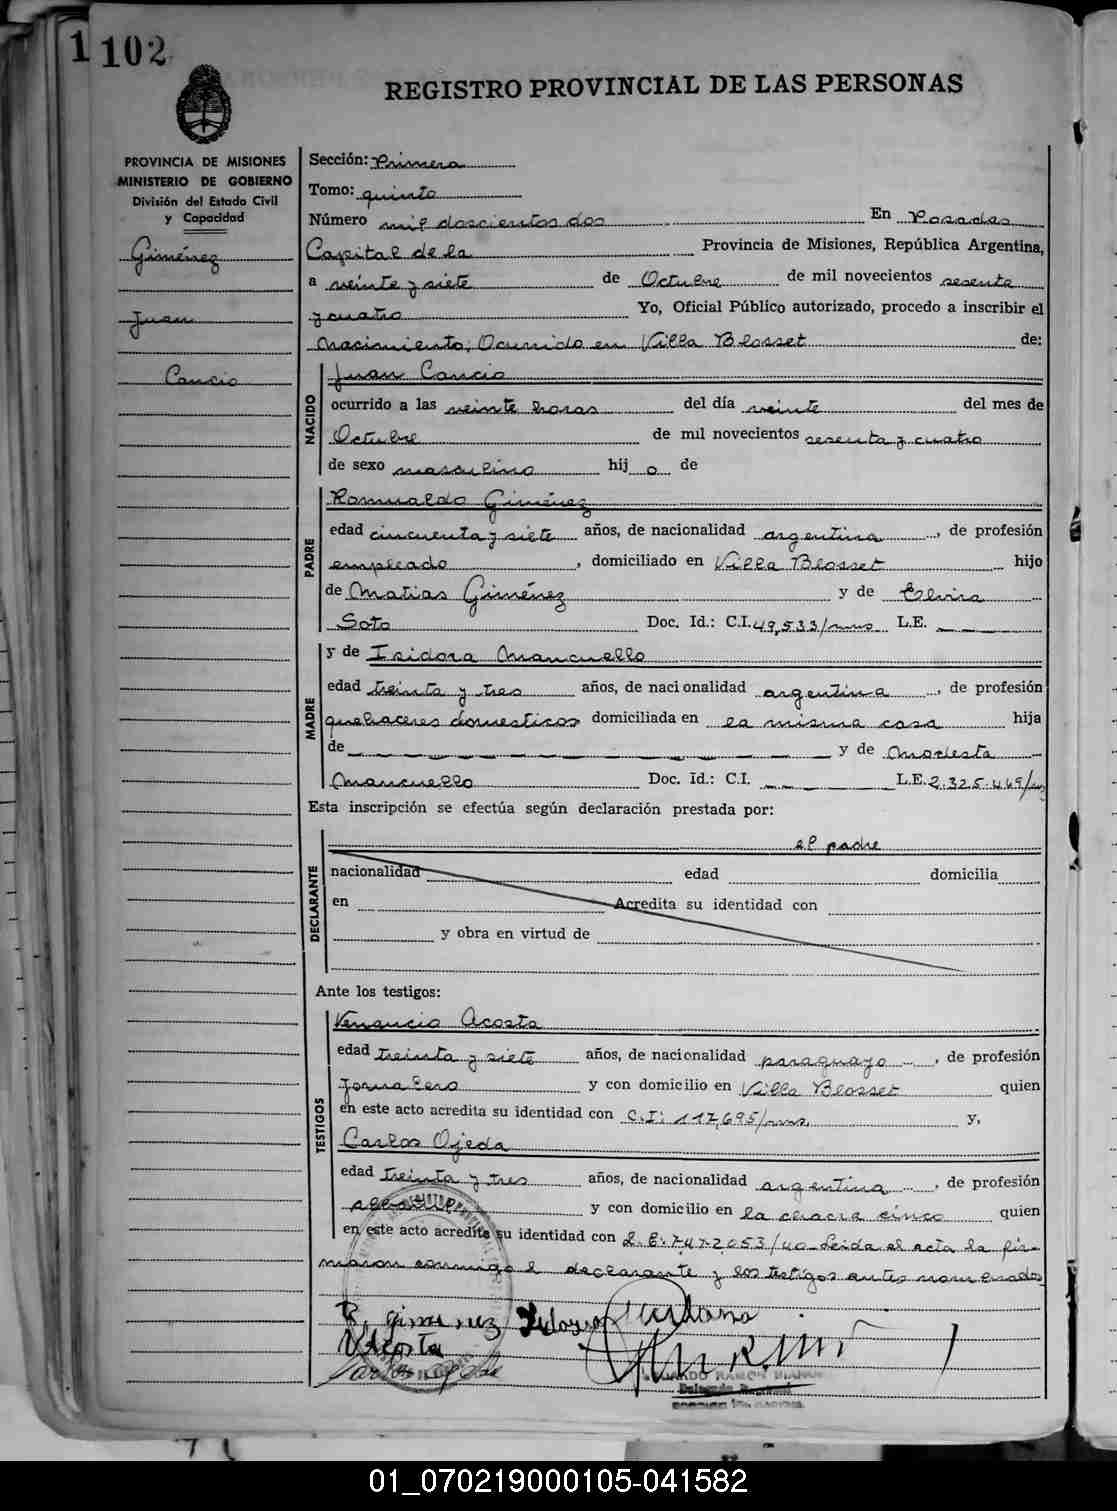 1102
REGISTRO PROVINCIAL DE LAS PERSONAS
PROVINCIA DE MISIONES
MINISTERIO DE GOBIERNO
División del Estado Civil
y Capacidad
Giménez
Juan
Cancio
Sección: Primera
Tomo: quinto
Número mil doscientos dos En Posadas
Capital de la Provincia de Misiones, República Argentina,
a veinte y siete de Octubre de mil novecientos sesenta
y cuatro Yo, Oficial Público autorizado, procedo a inscribir el
Nacimiento; Ocurrido en Villa Blosset de:
NACIDO
Juan Cancio
ocurrido a las veinte horas del día veinte del mes de
Octubre de mil novecientos sesenta y cuatro
de sexo masculino hijo de
PADRE
Romualdo Giménez
edad cincuenta y siete años, de nacionalidad argentina, de profesión
empleado, domiciliado en Villa Blosset hijo
de Matias Giménez y de Elvira
Soto Doc. Id.: C.I. 49,533/mns L.E.
MADRE
y de Isidora Mancuello
edad treinta y tres años, de nacionalidad argentina, de profesión
quehaceres domesticos domiciliada en la misma casa hija
de y de Modesta
Mancuello Doc. Id.: C.I. L.E. 2.325.469/
Esta inscripción se efectúa según declaración prestada por:
DECLARANTE
el padre
nacionalidad edad domicilia
en Acredita su identidad con
y obra en virtud de
Ante los testigos:
TESTIGOS
Venancio Acosta
edad treinta y siete años, de nacionalidad paraguayo, de profesión
Jornalero y con domicilio en Villa Blosset quien
en este acto acredita su identidad con C.I: 117,695/mns. y,
Carlos Ojeda
edad treinta y tres años, de nacionalidad argentina, de profesión
y con domicilio en la chacra cinco quien
en este acto acredita su identidad con L.E. 7.472.053/40- Leida el acta la fir-
maron conmigo el declarante y los testigos antes nombrados
R. gimenez
V Acosta
Carlos Ojeda
RAMON
Delegado
01_070219000105-041582